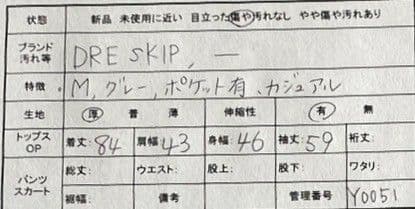 状態 新品 未使用に近い 目立った傷や汚れなし やや傷や汚れあり
ブランド 汚れ等 DRESKIP, ー
特徴 ・M, グレー, ポケット有, カジュアル
生地 厚 普 薄 伸縮性 有 無
トップス OP 着丈: 84 肩幅: 43 身幅: 46 袖丈: 59 裄丈:
パンツ スカート 総丈: ウエスト: 股上: 股下: ワタリ:
裾幅: 備考 管理番号 Y0051